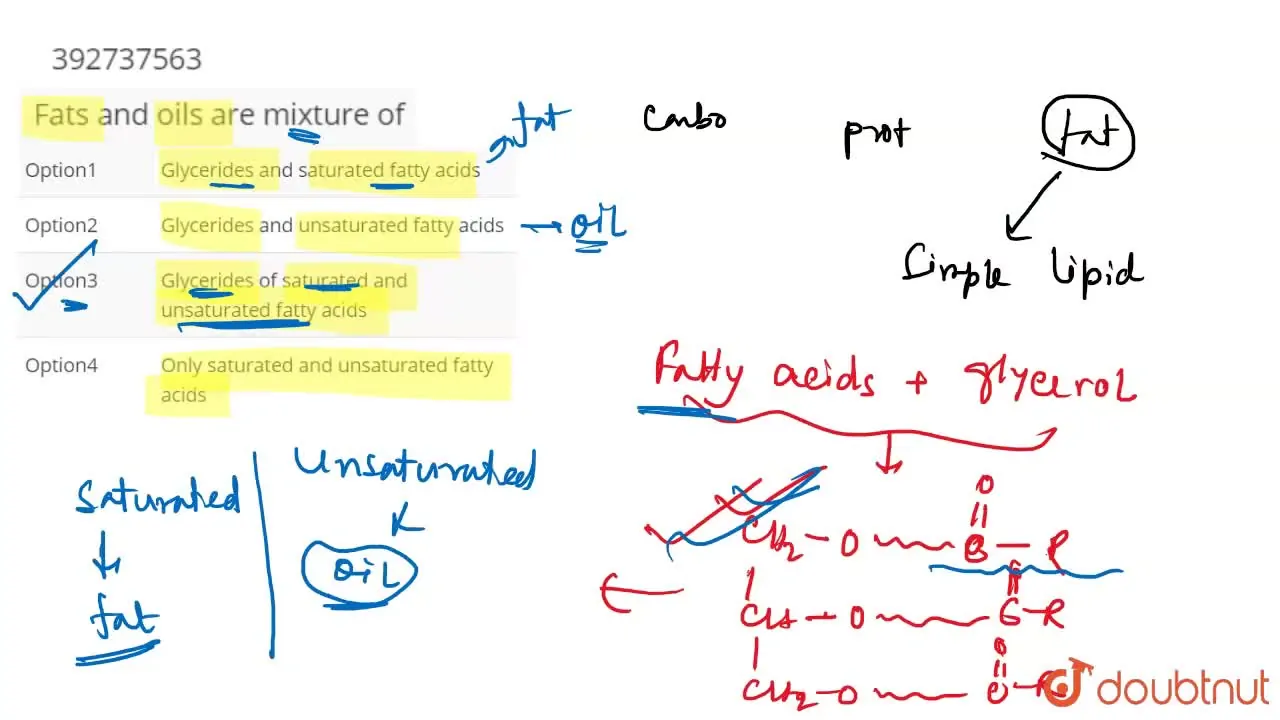 392737563
Fats and oils are mixture of
fat
Option1 Glycerides and saturated fatty acids
Option2 Glycerides and unsaturated fatty acids → OiL
Option3 Glycerides of saturated and
unsaturated fatty acids
Option4 Only saturated and unsaturated fatty
acids
Carbo prot fat
Simple lipid
Fatty acids + glycerol
Saturated
fat
Unsaturated
OiL
O
CH2 - O C - R
CH - O C - R
O
CH2 - O C - R
doubtnut